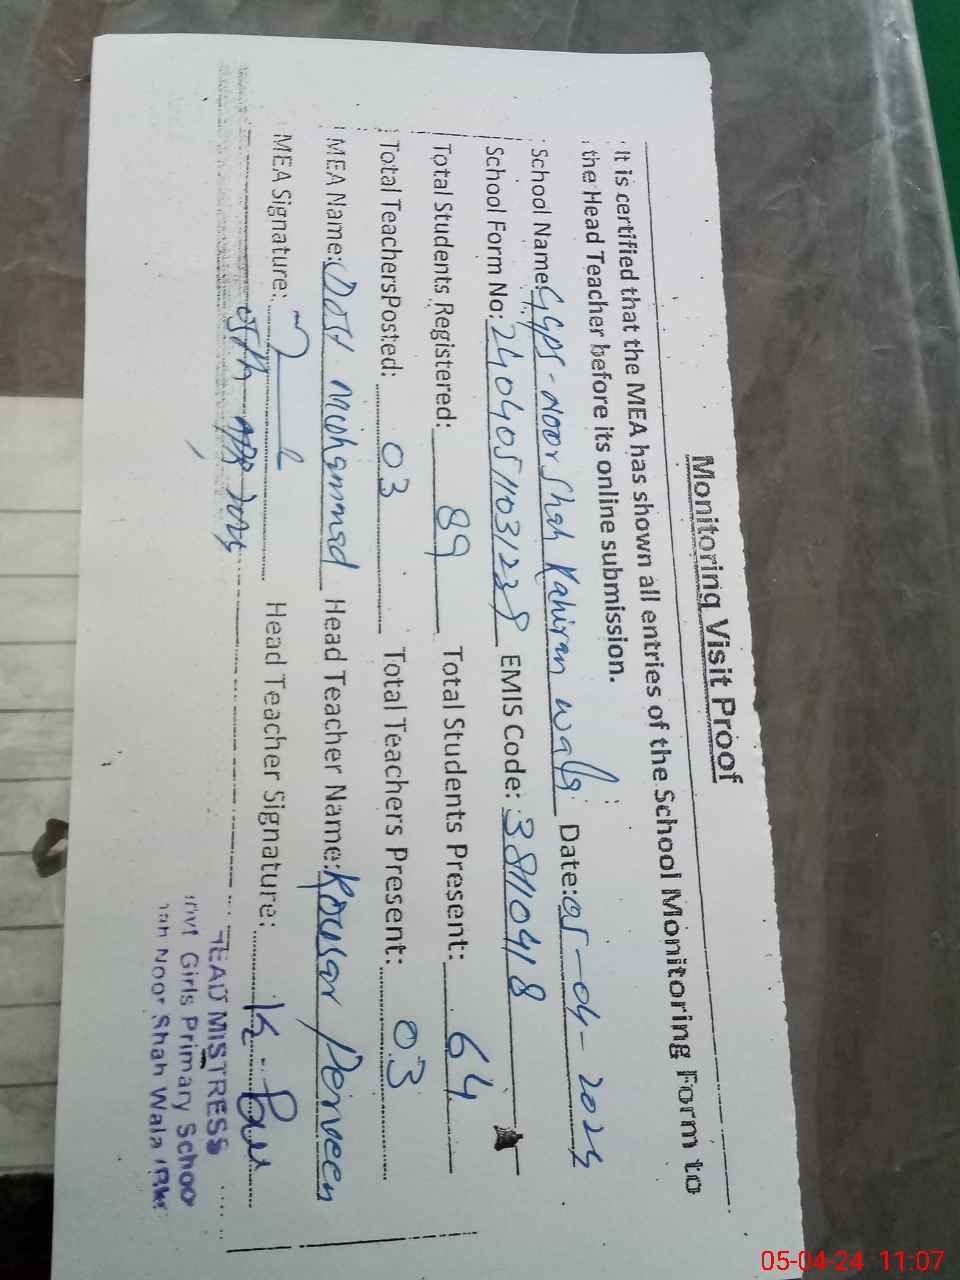 Monitoring Visit Proof
It is certified that the MEA has shown all entries of the School Monitoring Form to
the Head Teacher before its online submission.
School Name: GGPS - Noor Shah Kahiran wala Date: 05-04-2024
School Form No: 24040511031238 EMIS Code: 38110418
Total Students Registered: 89 Total Students Present: 64
Total Teachers Posted: 03 Total Teachers Present: 03
MEA Name: Dost Muhammad Head Teacher Name: Kousar Perveen
MEA Signature: Head Teacher Signature:
HEAD MISTRESS
Govt Girls Primary School
Noor Shah Wala
05-04-24 11:07